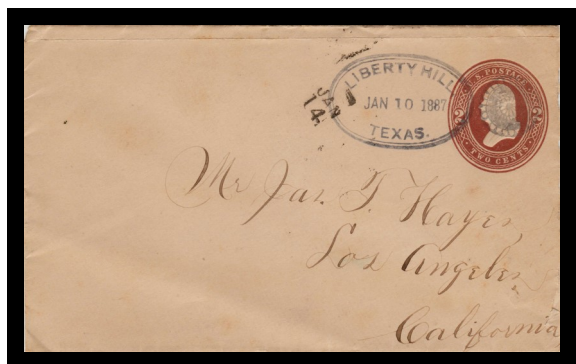 LIBERTY HILL
JAN 10 1887
TEXAS.
U.S. POSTAGE
2 2
TWO CENTS
JAN
14
Mr Jas. T. Hayes
Los Angeles,
California